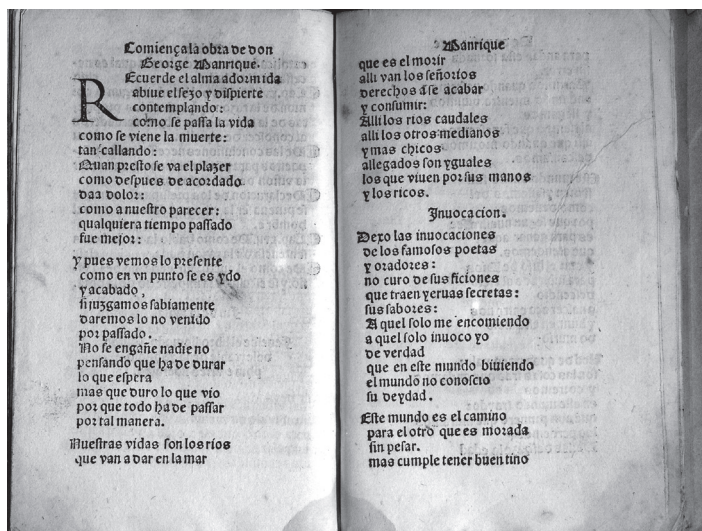 Comiença la obra de don
George Manrique.
REcuerde el alma adormida
abiue el sejo y dispierte
contemplando:
como se passa la vida
como se viene la muerte:
tan callando:
Quan presto se va el plazer
como despues de acordado
daa dolor:
como a nuestro parecer:
qualquiera tiempo passado
fue mejor:
Y pues vemos lo presente
como en vn punto se es ydo
y acabado,
si juzgamos sabiamente
daremos lo no venido
por passado.
No se engañe nadie no
pensando que ha de durar
lo que espera
mas que duro lo que vio
por que todo ha de passar
por tal manera.
Nuestras vidas son los rios
que van a dar en la mar
Manrique
que es el morir
alli van los señorios
derechos a se acabar
y consumir:
Alli los rios caudales
alli los otros medianos
y mas chicos
allegados son yguales
los que viuen por sus manos
y los ricos.
Inuocacion.
Dexo las inuocaciones
de los famosos poetas
y oradores:
no curo de sus ficiones
que traen yeruas secretas:
sus sabores:
A quel solo me encomiendo
a quel solo inuoco yo
de verdad
que en este mundo biuiendo
el mundo no conoscio
su deydad.
Este mundo es el camino
para el otro que es morada
sin pesar.
mas cumple tener buen tino